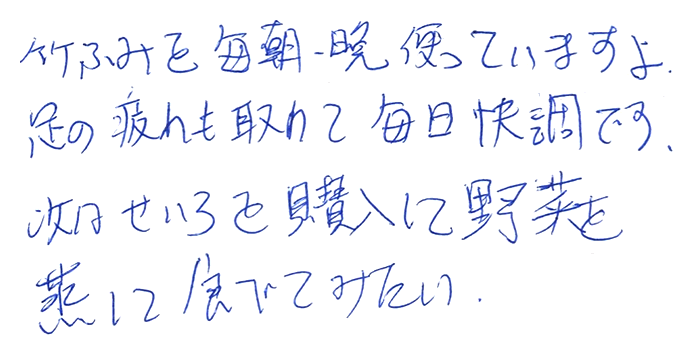 竹ふみを毎朝・晩使っていますよ.
足の疲れも取れて毎日快調です.
次はせいろを購入して野菜を
蒸して食べてみたい.